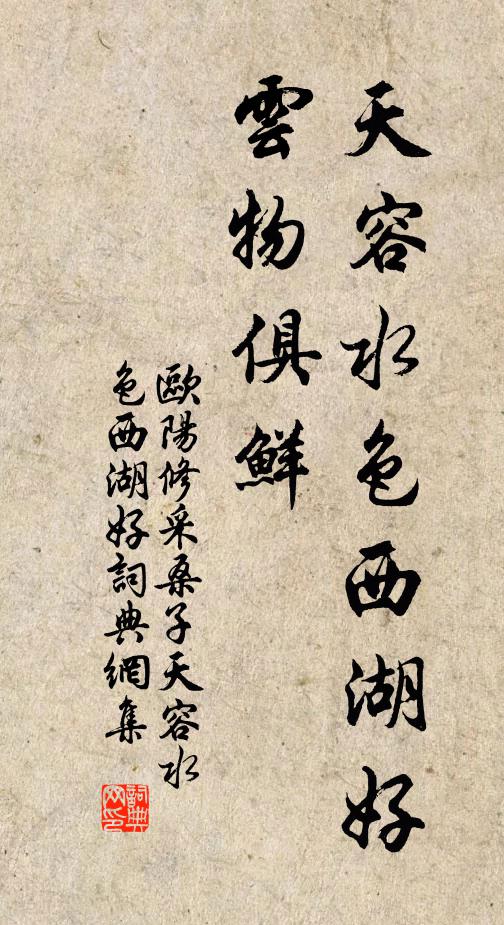 天容水色西湖好
雲物俱鮮
歐陽修采桑子天容水
色西湖好詞典網集
詞典网印